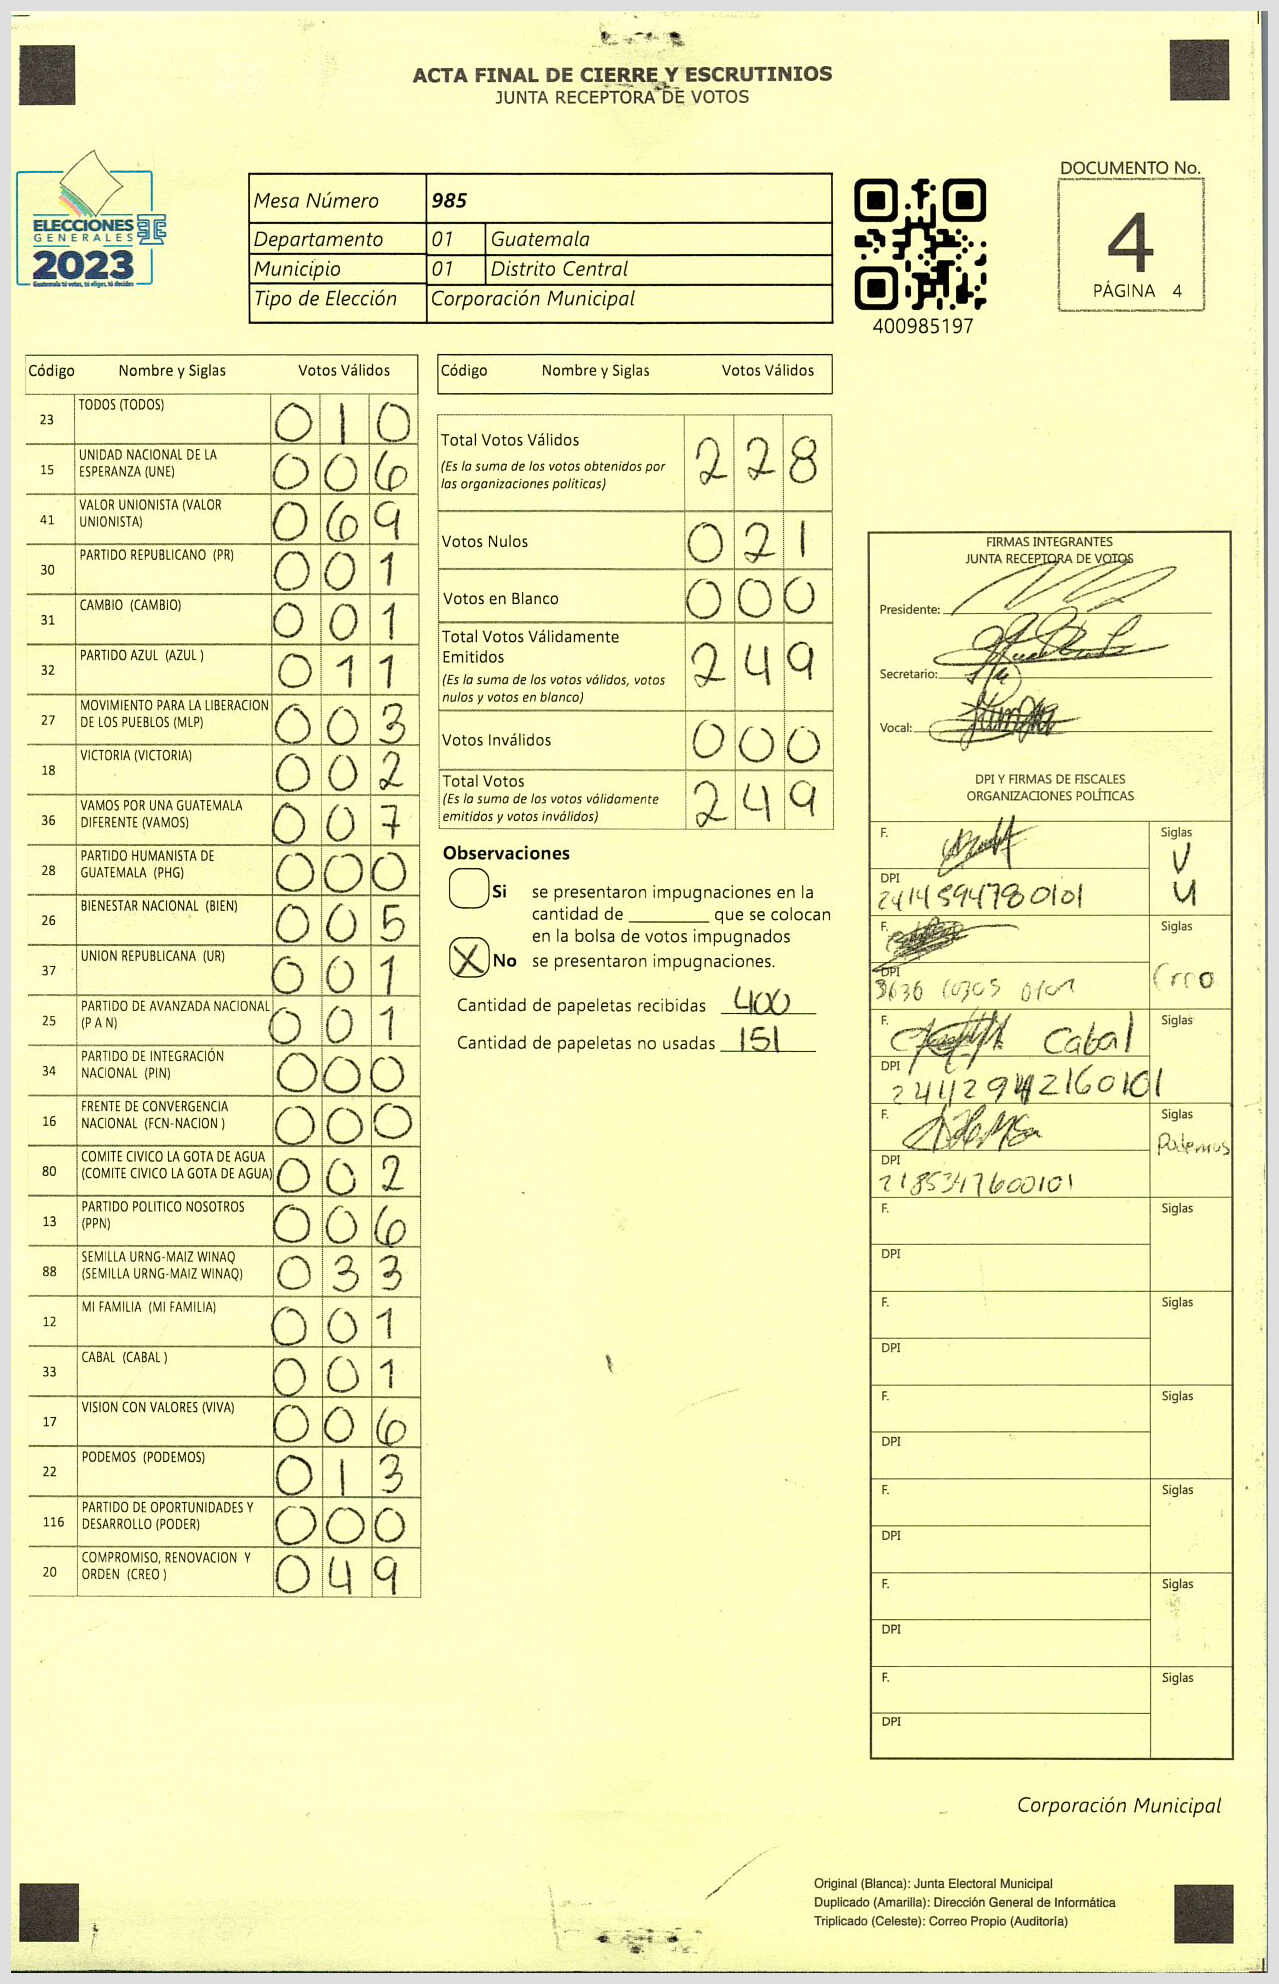 ACTA FINAL DE CIERRE Y ESCRUTINIOS
JUNTA RECEPTORA DE VOTOS
ELECCIONES
GENERALES
2023
Guatemala tú votas, tú eliges, tú decides
Mesa Número 985
Departamento 01 Guatemala
Municipio 01 Distrito Central
Tipo de Elección Corporación Municipal
400985197
DOCUMENTO No.
4
PÁGINA 4
Código Nombre y Siglas Votos Válidos
23 TODOS (TODOS) 010
15 UNIDAD NACIONAL DE LA
ESPERANZA (UNE) 006
41 VALOR UNIONISTA (VALOR
UNIONISTA) 069
30 PARTIDO REPUBLICANO (PR) 001
31 CAMBIO (CAMBIO) 001
32 PARTIDO AZUL (AZUL ) 011
27 MOVIMIENTO PARA LA LIBERACION
DE LOS PUEBLOS (MLP) 003
18 VICTORIA (VICTORIA) 002
36 VAMOS POR UNA GUATEMALA
DIFERENTE (VAMOS) 007
28 PARTIDO HUMANISTA DE
GUATEMALA (PHG) 000
26 BIENESTAR NACIONAL (BIEN) 005
37 UNION REPUBLICANA (UR) 001
25 PARTIDO DE AVANZADA NACIONAL
(P A N) 001
34 PARTIDO DE INTEGRACIÓN
NACIONAL (PIN) 000
16 FRENTE DE CONVERGENCIA
NACIONAL (FCN-NACION ) 000
80 COMITE CIVICO LA GOTA DE AGUA
(COMITE CIVICO LA GOTA DE AGUA) 002
13 PARTIDO POLITICO NOSOTROS
(PPN) 006
88 SEMILLA URNG-MAIZ WINAQ
(SEMILLA URNG-MAIZ WINAQ) 033
12 MI FAMILIA (MI FAMILIA) 001
33 CABAL (CABAL ) 001
17 VISION CON VALORES (VIVA) 006
22 PODEMOS (PODEMOS) 013
116 PARTIDO DE OPORTUNIDADES Y
DESARROLLO (PODER) 000
20 COMPROMISO, RENOVACION Y
ORDEN (CREO ) 049
Código Nombre y Siglas Votos Válidos
Total Votos Válidos 228
(Es la suma de los votos obtenidos por
las organizaciones políticas)
Votos Nulos 021
Votos en Blanco 000
Total Votos Válidamente
Emitidos 249
(Es la suma de los votos válidos, votos
nulos y votos en blanco)
Votos Inválidos 000
Total Votos 249
(Es la suma de los votos válidamente
emitidos y votos inválidos)
Observaciones
Si se presentaron impugnaciones en la
cantidad de ________ que se colocan
en la bolsa de votos impugnados
X No se presentaron impugnaciones.
Cantidad de papeletas recibidas 400
Cantidad de papeletas no usadas 151
FIRMAS INTEGRANTES
JUNTA RECEPTORA DE VOTOS
Presidente:
Secretario:
Vocal:
DPI Y FIRMAS DE FISCALES
ORGANIZACIONES POLÍTICAS
F. Siglas
V
DPI U
2414594780101
F. Siglas
DPI
F. Cabal Siglas
DPI
F. Siglas
Podemos
DPI
2185347600101
F. Siglas
DPI
F. Siglas
DPI
F. Siglas
DPI
F. Siglas
DPI
F. Siglas
DPI
F. Siglas
DPI
Corporación Municipal
Original (Blanca): Junta Electoral Municipal
Duplicado (Amarilla): Dirección General de Informática
Triplicado (Celeste): Correo Propio (Auditoría)